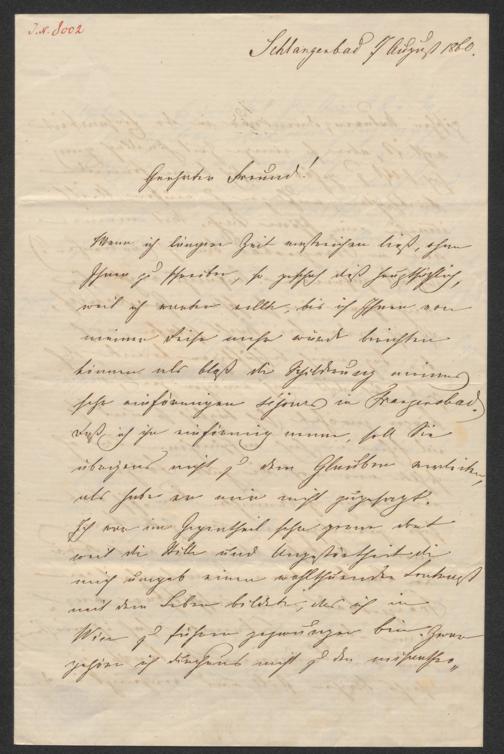 J.N. 8002
Schlangenbad 7 August 1860.
Geehrter Freund!
Wenn ich längere Zeit verstreichen ließ, ohne
Ihnen zu schreiben, so geschah dieß hauptsächlich,
weil ich warten wollte, bis ich Ihnen von
meiner Reise mehr würde berichten
können als bloß die Schilderung meines
sehr einförmigen Séjours in Franzensbad.
Daß ich ihn einförmig nenne, soll Sie
übrigens nicht zu dem Glauben verleiten,
als habe er mir nicht zugesagt.
Ich war im Gegentheil sehr gerne dort
weil die Stille und Ungestörtheit die
mich umgab einen wohlthuenden Contrast
mit dem Leben bildete, das ich in
Wien zu führen gezwungen bin. Zwar
gehöre ich durchaus nicht zu den misanthro-